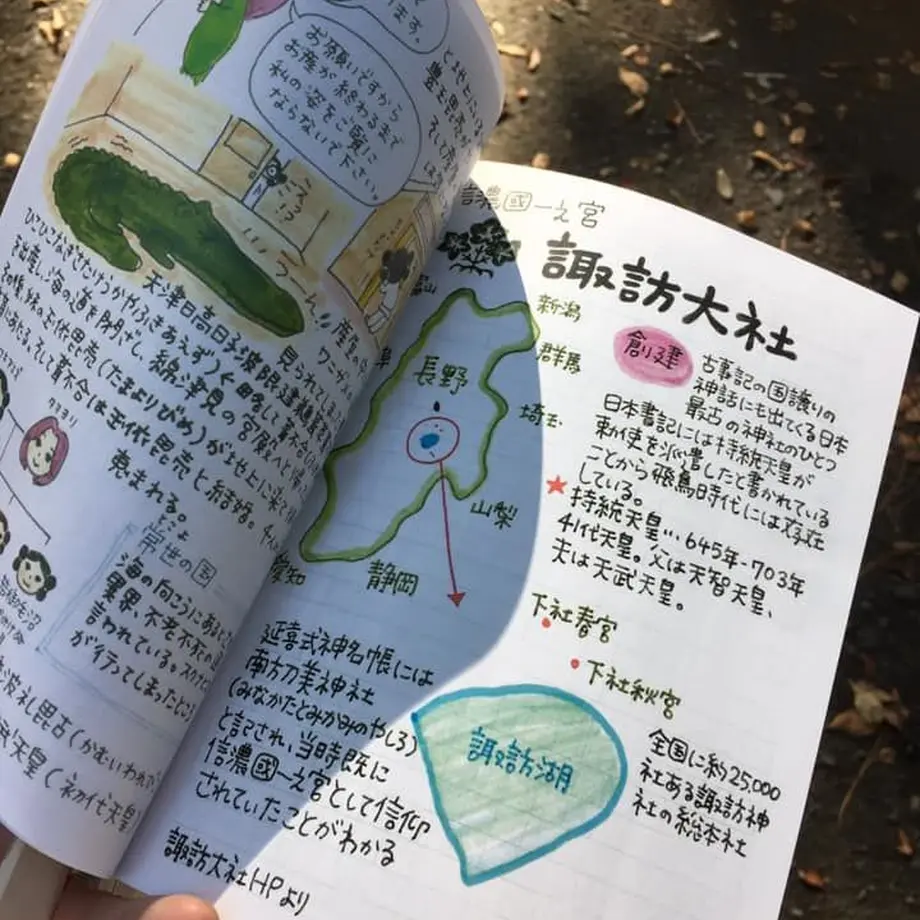 ます。
お願いですから
お産が終わるまで
私の姿をご覧に
ならないで下さい。
えっ
!?
見られてしまい
天津日高日子波限建鵜
ひこひこなぎさたけうかやふきあえず)
を出産し、海の道を閉ざし、綿津見の宮殿へと帰
(たまよりびめ)が
は玉依毘売と結婚。
恵まれる。
常世の国
海の向こうにあると
異界、不老不死の
言われている。スクナ
が行ってしまったという
(かむいわれ
武天皇(初代天皇
信濃國一之宮
諏訪大社
新潟
群馬
長野
埼玉
山梨
静岡
愛知
創建
古事記の国譲りの
神話にも出てくる日本
最古の神社のひとつ
日本書記には持統天皇が
勅使を派遣したと書かれている
ことから飛鳥時代には存在
している。
★持統天皇…645年-703年
41代天皇。父は天智天皇、
夫は天武天皇。
下社春宮
下社秋宮
延喜式神名帳には
南方刀美神社
(みなかたとみかみのやしろ)
と記され、当時既に
信濃國一之宮として信仰
されていたことがわかる
諏訪大社HPより
諏訪湖
全国に約25,000
社ある諏訪神
社の総本社